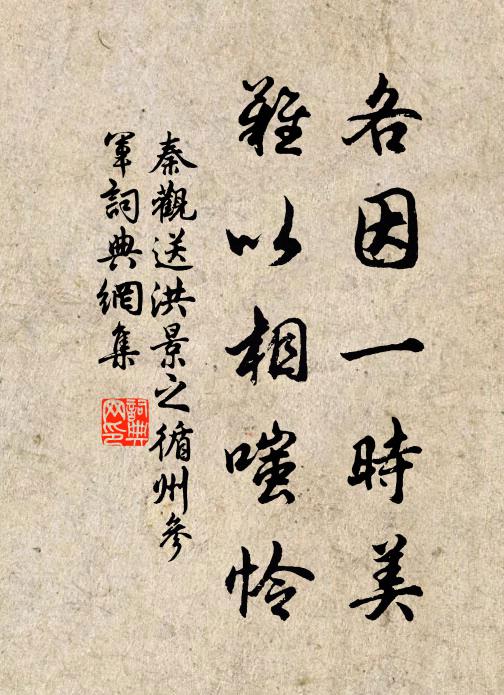 各因一時美
難以相嗤怜
秦觀送洪景之循州參
軍詞典網集
詞典
网印